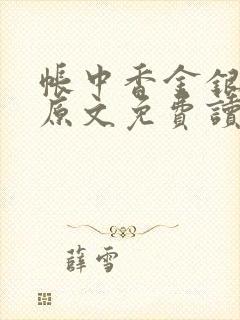 帳中香金銀
原文免費讀
薛雪